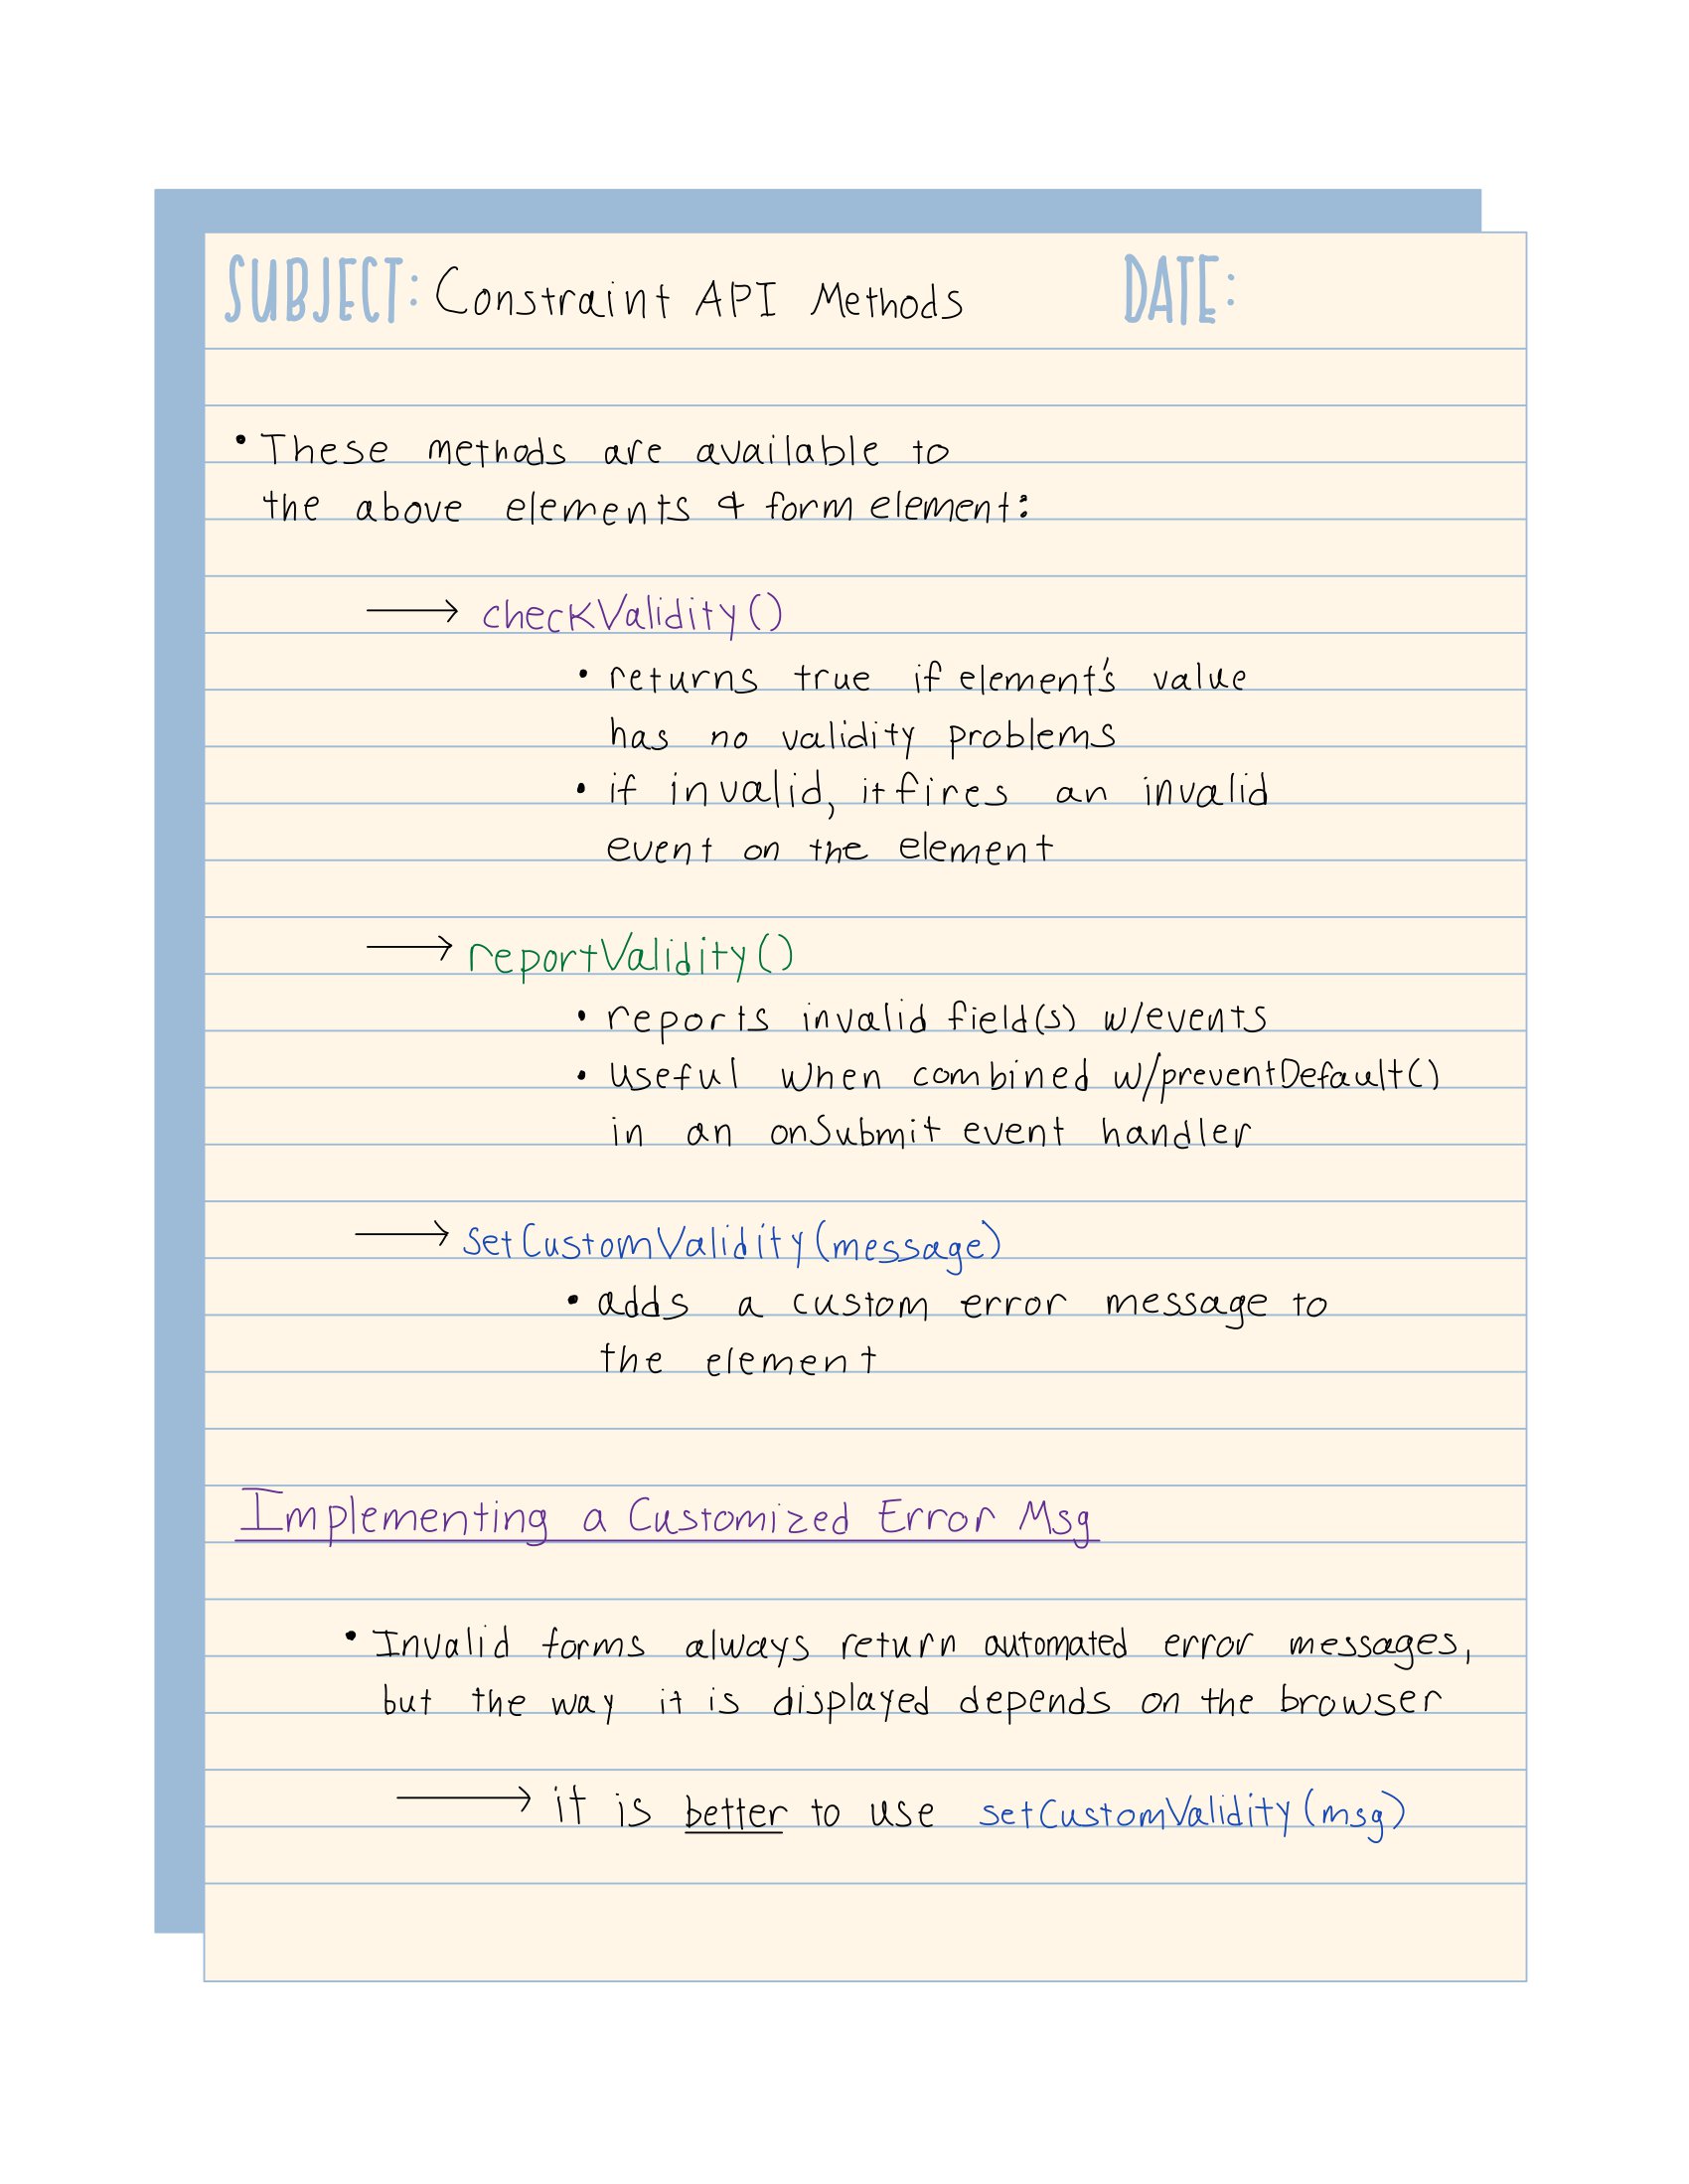 SUBJECT: Constraint API Methods DATE:
• These methods are available to
the above elements & form element:
→ checkValidity()
• returns true if element's value
has no validity problems
• if invalid, it fires an invalid
event on the element
→ reportValidity()
• reports invalid field(s) w/events
• useful when combined w/preventDefault()
in an onSubmit event handler
→ setCustomValidity(message)
• adds a custom error message to
the element
Implementing a Customized Error Msg
• Invalid forms always return automated error messages,
but the way it is displayed depends on the browser
→ it is better to use setCustomValidity(msg)